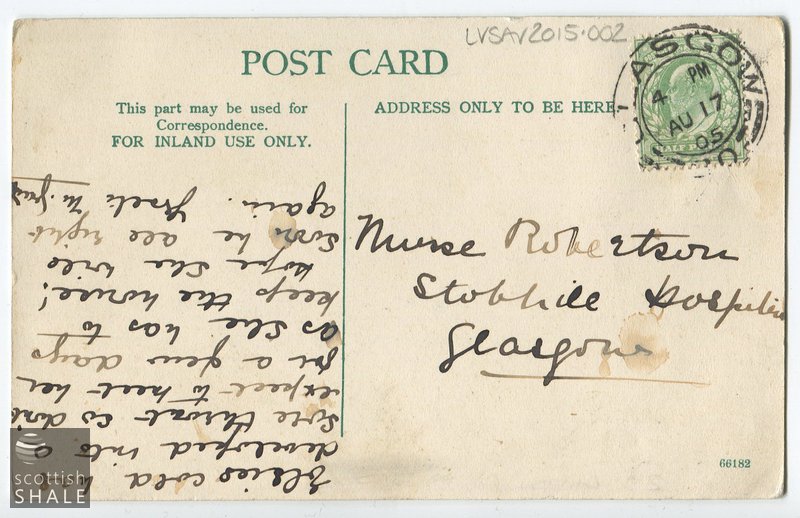 LVSAV2015.002
POST CARD
This part may be used for
Correspondence.
FOR INLAND USE ONLY.
ADDRESS ONLY TO BE HERE
GLASGOW
4 PM
AU 17
05
HALF PENNY
Elsies cold has
developed into a
sore throat so don't
expect to meet her
for a few days
as she has to
keep the house!
hope she will
soon be all right
again.
Nurse Robertson
Stobhill Hospital
Glasgow
66182
scottish
SHALE